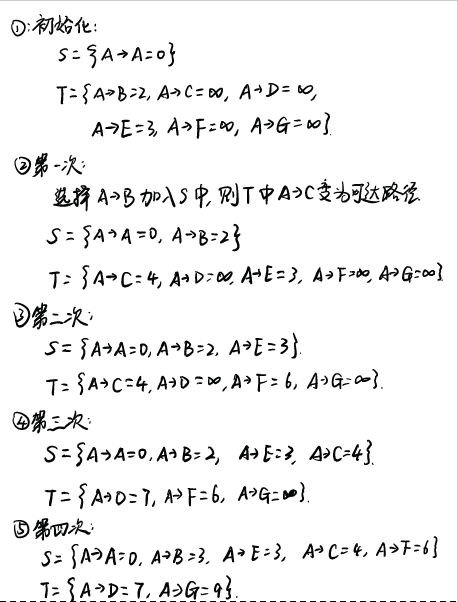 ①:初始化:
S={A→A=0}
T={A→B=2, A→C=∞, A→D=∞,
A→E=3, A→F=∞, A→G=∞}.
②第一次:
选择 A→B 加入S中,则T中A→C变为可达路径
S={A→A=0, A→B=2}
T={A→C=4, A→D=∞, A→E=3, A→F=∞, A→G=∞}
③第二次:
S={A→A=0, A→B=2, A→E=3}.
T={A→C=4, A→D=∞, A→F=6, A→G=∞}.
④第三次:
S={A→A=0, A→B=2, A→E=3, A→C=4}.
T={A→D=7, A→F=6, A→G=∞}.
⑤第四次:
S={A→A=0, A→B=3, A→E=3, A→C=4, A→F=6}
T={A→D=7, A→G=9}.